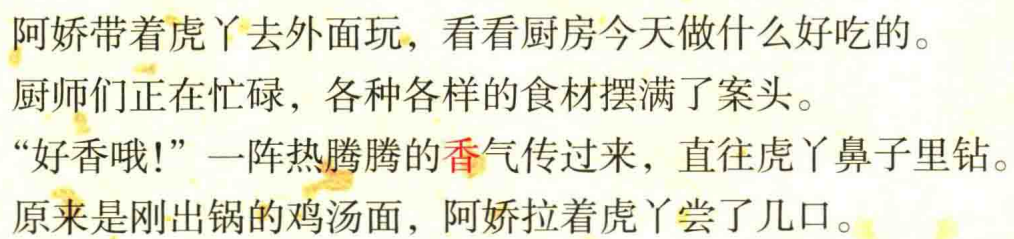 阿娇带着虎丫去外面玩，看看厨房今天做什么好吃的。
厨师们正在忙碌，各种各样的食材摆满了案头。
“好香哦！”一阵热腾腾的香气传过来，直往虎丫鼻子里钻。
原来是刚出锅的鸡汤面，阿娇拉着虎丫尝了几口。